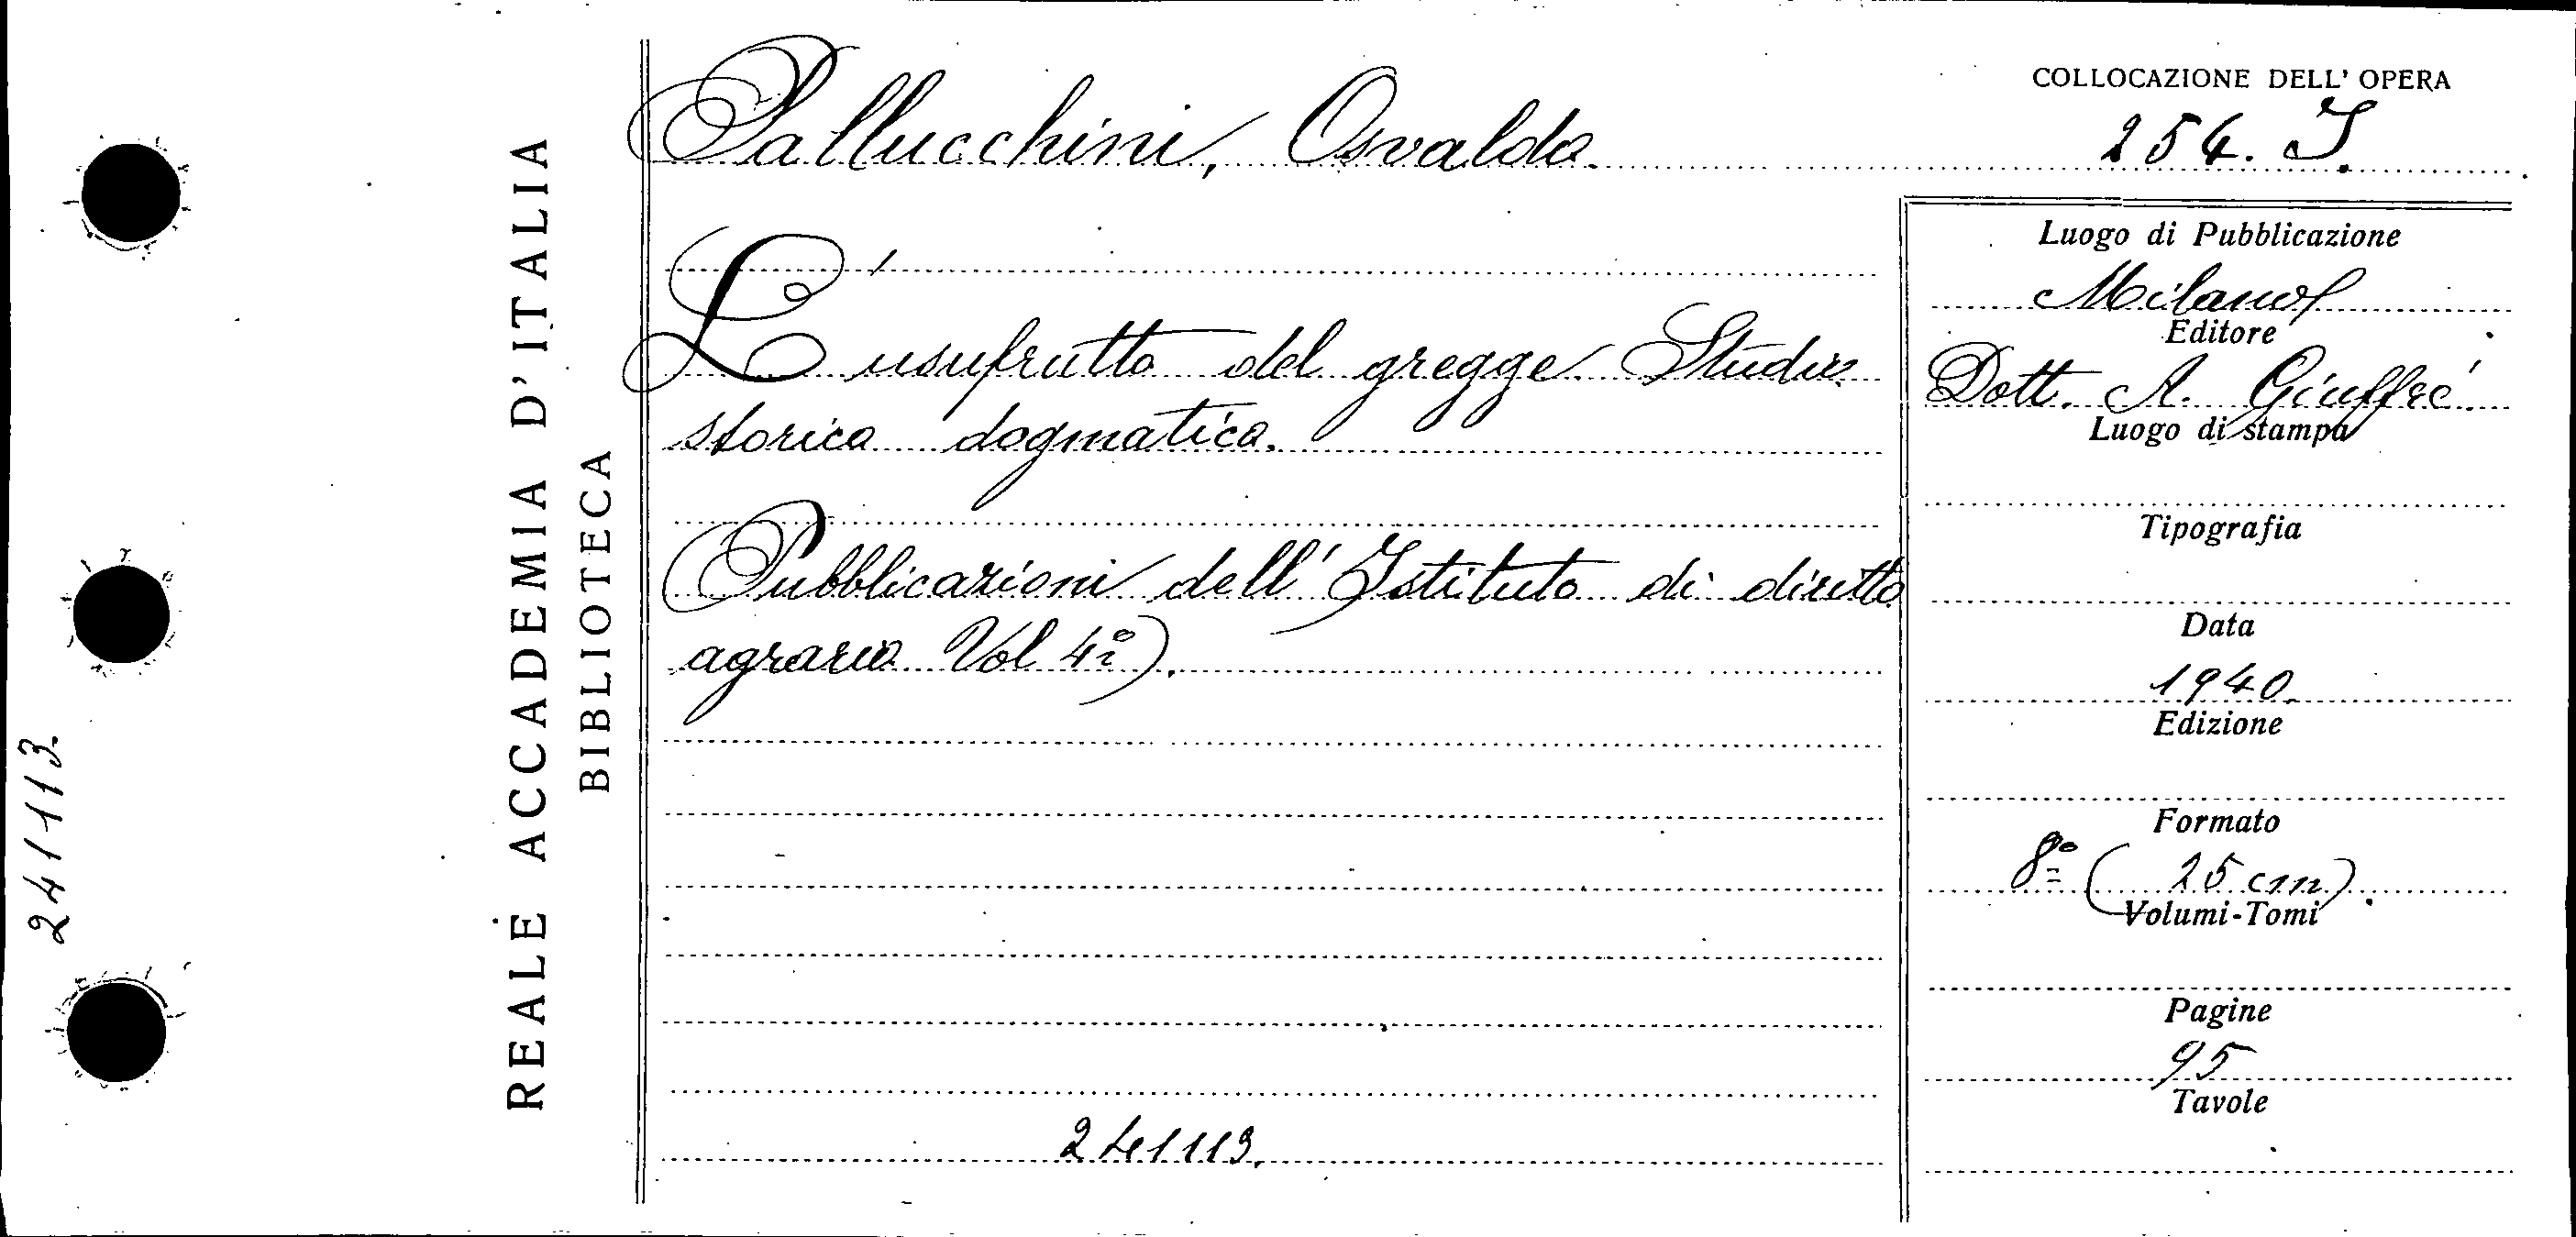 241113.
REALE ACCADEMIA D'ITALIA
BIBLIOTECA
Pallucchini, Osvaldo.
L'
usufrutto del gregge. Studio
storico dogmatico.
(Pubblicazioni dell' Istituto di diritto
agrario Vol 4º).
241113.
COLLOCAZIONE DELL' OPERA
254. I.
Luogo di Pubblicazione
Milano
Editore
Dott. A. Giuffrè.
Luogo di stampa
Tipografia
Data
1940.
Edizione
Formato
8º (25 cm).
Volumi-Tomi
Pagine
95
Tavole